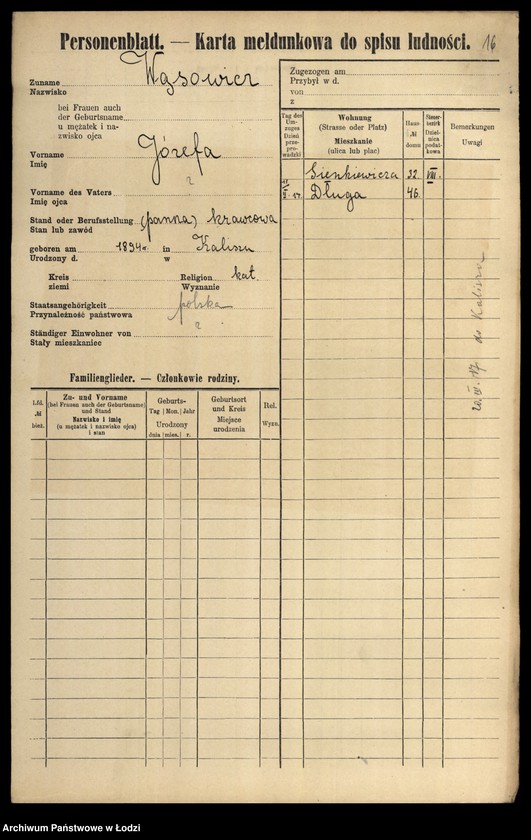 Personenblatt. — Karta meldunkowa do spisu ludności. 16
Zuname Wąsowicz
Nazwisko
bei Frauen auch
der Geburtsname
u mężatek i na-
zwisko ojca
Vorname Józefa
Imię
?
Vorname des Vaters
Imię ojca
Stand oder Berufsstellung (panna) krawcowa
Stan lub zawód
geboren am 1894 r. in Kaliszu
Urodzony d. w
Kreis Religion kat
ziemi Wyznanie
Staatsangehörigkeit polska
Przynależność państwowa
?
Ständiger Einwohner von
Stały mieszkaniec
Familienglieder. — Członkowie rodziny.
Lfd. № bież.
Zu- und Vorname
(bei Frauen auch der Geburtsname)
und Stand
Nazwisko i imię
(u mężatek i nazwisko ojca)
i stan
Geburts-
Tag Mon. Jahr
Urodzony
dnia mies. r.
Geburtsort
und Kreis
Miejsce
urodzenia
Rel.
Wyzn.
Zugezogen am
Przybył w d.
von
z
Tag des
Um-
zuges
Dzień
prze-
prowadzki
Wohnung
(Strasse oder Platz)
Mieszkanie
(ulica lub plac)
Haus
№
domu
Steuer-
bezirk
Dziel-
nica
podat-
kowa
Bemerkungen
Uwagi
Sienkiewicza 32. VIII.
Długa 46.
do Kalisza
Archiwum Państwowe w Łodzi